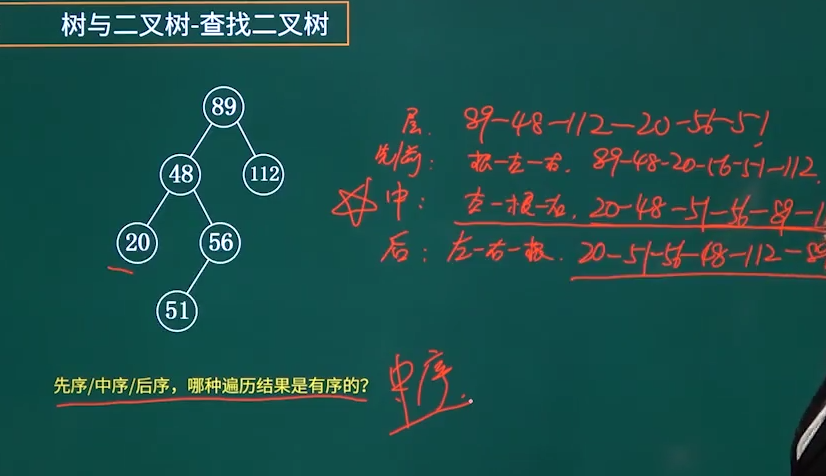 树与二叉树-查找二叉树
89
48
112
20
56
51
层. 89-48-112-20-56-51
先/前: 根-左-右. 89-48-20-56-51-112.
中: 左-根-右. 20-48-51-56-89-11
后: 左-右-根. 20-51-56-48-112-89
先序/中序/后序，哪种遍历结果是有序的?
中序.